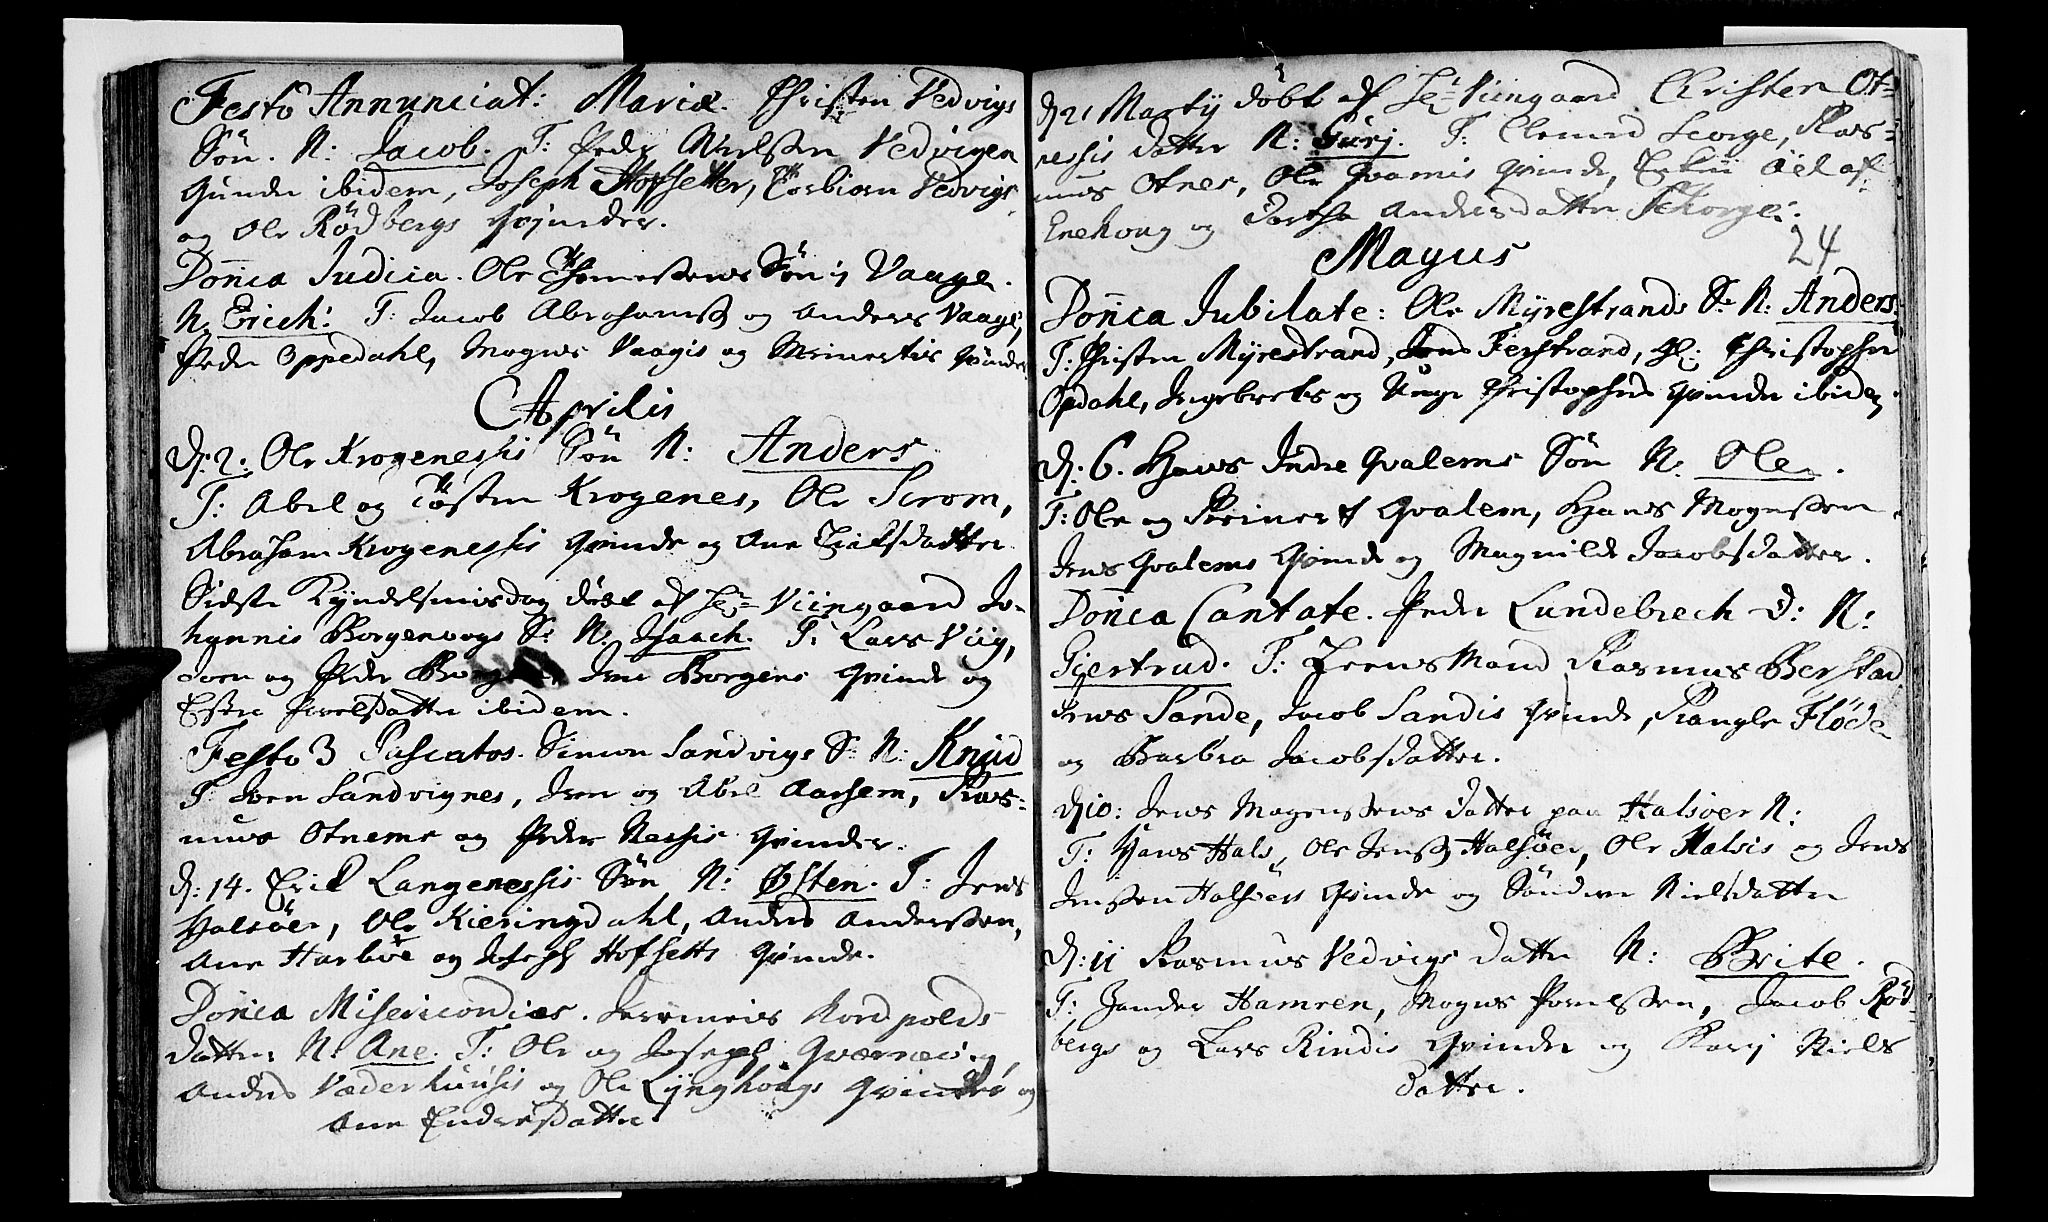 Festo Annunciat: Mariæ. Christen Vedvigs
Søn. N: Jacob. T: Peder Nielssen Vedvigen
Gunder ibidem, Joseph Hofsetter, Torbiørn Vedvigs
og Ole Rødbergs Qvinder.
Doñica Judica. Ole Thomessens Søn i Vaage.
N. Erich. T: Jacob Abrahamss og Anders Vaage,
Peder Oppedahl, Mogens Vaagis og Qvinder
Aprilis
D: 2. Ole Krogenessis Søn N: Anders.
T: Abel og Tosten Krogenes, Ole Strom,
Abraham Krogenessis Qvinde og Ane Erichsdatter.
Sidste Kyndelmisdag døbt af Hr Viingaard Jo-
hannis Borgenvogs S: N. Isaach. T: Lars Viig,
Iven og Peder Jens Borgens Qvinde og
datter ibidem.
Festo 3 Pascatos. Simon Sandvigs S: N: Knud
T: Iven Sandvignes, Iven og Abel Aarsem, Ras-
mus Otnems og Peder Nessis Qvinder.
D: 14. Erik Langenessis Søn N: Østen. T: Jens
Halsöer, Ole Kieringdahl, Anders Anderssen,
Ane Harböe og Joseph Hofsetts Qvinde.
Doñica Misericordias. Jeremias Nordpolds
datter N: Ane. T: Ole og Joseph Qværnes
Anders Væderhuusis og Ole Lynghougs Qvinder og
Ane Endresdatter.
D 21 Martij döbt af Hr Viingaard Christen Ot-
nessis datter N: Gurj. T: George, Ras-
mus Otnes, Ole Qvamis Qvinde, af
Enekoug og Dorthe Andersdatter Skorge.
24
Mayus
Doñica Jubilate: Ole Myrestrands S: N: Anders.
T: Christen Myrestrand, Jens Ferstrand, Christopher
Opdahl, Ingebrets og Unge Christophers Qvinder ibidem.
D: 6. Hans Indre Qvalems Søn N: Ole.
T: Ole og Reinert Qvalem, Hans Mogenssen
Jens Qvalems Qvinde og Magnilde Jacobsdatter.
Doñica Cantate. Peder Lundebrech D: N:
Giertrud. T: Leens Mand Rasmus Berstad
Jens Sande, Jacob Sandis Qvinde, Rangle Flöde
og Barbra Jacobsdatter.
D 10: Jens Mogenssens datter paa Halsöer N:
T: Hans Hals, Ole Jenss Halsöer, Ole Halsis og Jens
Jenssen Halsöers Qvinde og Nielsdatter
D: 11 Rasmus Vedvigs datter N: Brite.
T: Zander Hamren, Mogens Povelssen, Jacob Rød-
bergs og Lars Rindis Qvinder og Karj Niels
datter.